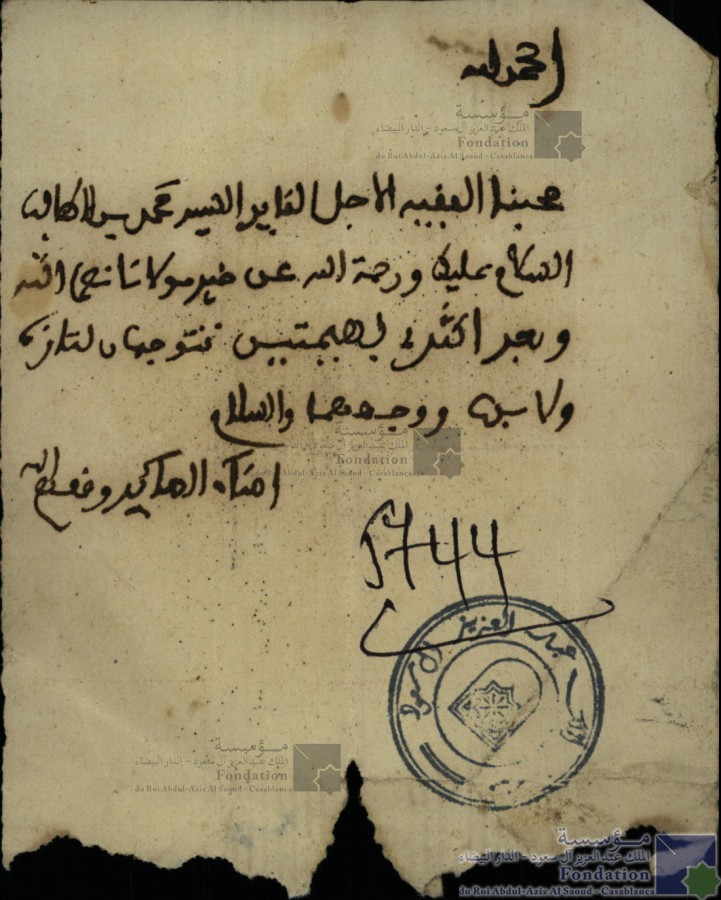 الحمد لله
مؤسسة
الملك عبد العزيز آل سعود - الدار البيضاء
Fondation
du Roi Abdul-Aziz Al Saoud - Casablanca
محبنا الفقيه الاجل القايد السيد محمد
السلام عليك ورحمة الله عن خير مولانا نصره الله
وبعد اكتر لي بهيمتين تتوجهان لتازة
ولا بد ووجههما والسلام
مؤسسة
الملك عبد العزيز آل سعود - الدار البيضاء
Fondation
du Roi Abdul-Aziz Al Saoud - Casablanca
امناء وفقهم الله
5744
عبد العزيز آل سعود
مؤسسة
الملك عبد العزيز آل سعود - الدار البيضاء
Fondation
du Roi Abdul-Aziz Al Saoud - Casablanca
مؤسسة
الملك عبد العزيز آل سعود - الدار البيضاء
Fondation
du Roi Abdul-Aziz Al Saoud - Casablanca